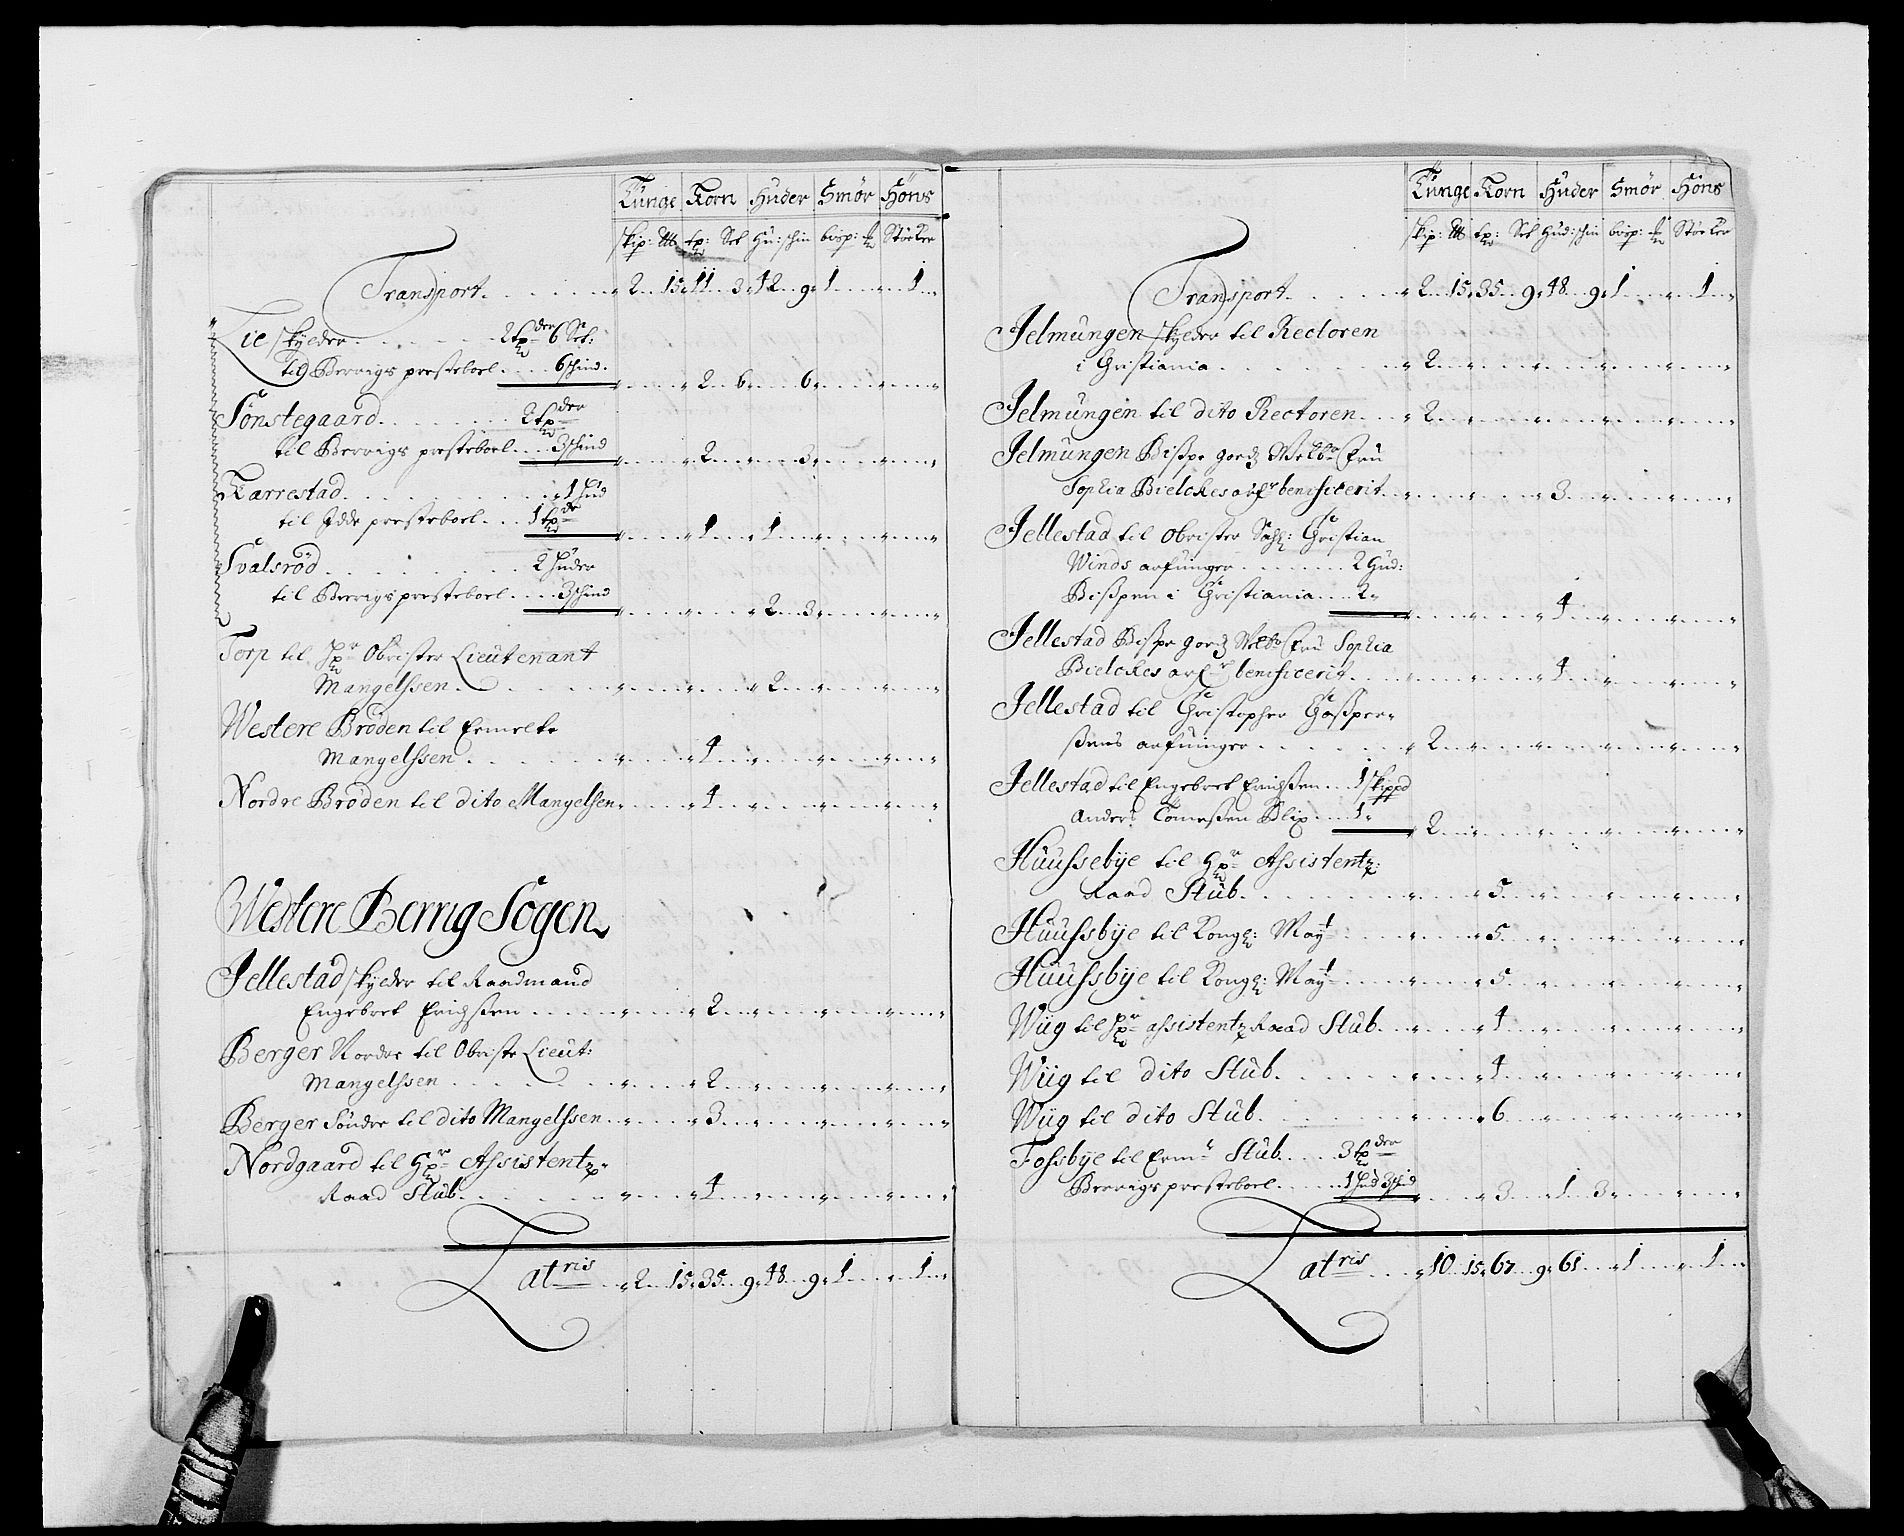 Tünge Korn Huder Smör Höns
skip: tp: Set Hu: schin bisp: Stöcker
Transport. 2 15 11 3 42 9 1 1
Lie skylder 2 tp 6 Set:
Til Berrigs presteboel 6 schind.
2 6 6
Tönstegaard 2 tp
til Berrigs presteboel 3 schind
2 3
Karrestad 1 Hud
til Idde presteboel 1 tp
1 1
Svalsröd 2 Huder
til Berrigs presteboel 3 schind
2 3
Torp til Obrister Lieutenant
Mangelssen 2
Westere Bröden til Ermelte
Mangelssen 4
Nordre Bröden til dito Mangelsen 4
Westere Berrig Sogen
Jellestad skylder til Raadmand
Engebret Erichssen 2
Berger Nordre til Obriste Lieut:
Mangelssen 2
Berger Söndre til dito Mangelssen 3
Nordgaard til Hr Assistentz
Raad Stub. 4
Latris 2 15 35 9 48 9 1 1
Tünge Korn Huder Smör Höns
skip: tp: Set Hud: schin bisp: Stöcker
Transport. 2 15 35 9 48 9 1 1
Jelmungen skylder til Rectoren
i Christiania 2
Jelmungen til dito Rectoren 2
Jelmungen Bispe goedz Welb: Fru
Sophia Bielckes arf: beneficerit 3
Jellestad til Obrister Sahl: Christian
Winds arfuinger 2 Hud:
Bispen i Christiania 2
4
Jellestad Bispe goedz Welb: Fru Sophia
Bielckes arf: beneficerit 4
Jellestad til Christopher
arfuinger 2
Jellestad til Engebret Erichssen 1 skippd
Anders Tomessen Blix 1
2
Huussebye til Hr Assistentz:
Raad Stub. 5
Huussbye til Kongl: May 5
Huussbye til Kongl: May 5
Wüg til Hr assistentz Raad Stub. 4
Wüg til dito Stub. 4
Wüg til dito Stub. 6
Fossbye til Erm: Stub 3 tp
Berrigs presteboel 1 Hud 3 schind
3 1 3
Latris 10 15 67 9 61 1 1